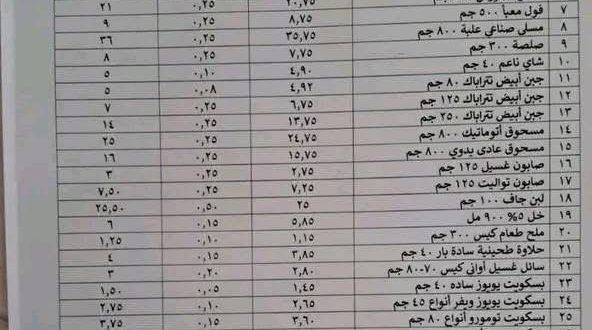 ٢٠,٧٥ ٠,٢٥ ٢١
٧ فول معبأ ٥٠٠ جم ٨,٧٥ ٠,٢٥ ٩
٨ مسلى صناعي علبة ٨٠٠ جم ٣٥,٧٥ ٠,٢٥ ٣٦
٩ صلصة ٣٠٠ جم ٧,٧٥ ٠,٢٥ ٨
١٠ شاي ناعم ٤٠ جم ٤,٩٠ ٠,١٠ ٥
١١ جبن أبيض تتراباك ٨٠ جم ٤,٩٢ ٠,٠٨ ٥
١٢ جبن أبيض تتراباك ١٢٥ جم ٦,٧٥ ٠,٢٥ ٧
١٣ جبن أبيض تتراباك ٢٥٠ جم ١٣,٧٥ ٠,٢٥ ١٤
١٤ مسحوق أتوماتيك ٨٠٠ جم ٢٤,٧٥ ٠,٢٥ ٢٥
١٥ مسحوق عادى يدوي ٨٠٠ جم ١٥,٧٥ ٠,٢٥ ١٦
١٦ صابون غسيل ١٢٥ جم ٢,٧٥ ٠,٢٥ ٣
١٧ صابون تواليت ١٢٥ جم ٧,٢٥ ٠,٢٥ ٧,٥٠
١٨ لبن جاف ١٠٠ جم ٢٥ ٠,٥٠ ٢٥,٥٠
١٩ خل ٥% ٩٠٠ مل ٥,٨٥ ٠,١٥ ٦
٢٠ ملح طعام كيس ٣٠٠ جم ١,١٥ ٠,١٠ ١,٢٥
٢١ حلاوة طحينية سادة بار ٤٠ جم ٣,٨٥ ٠,١٥ ٤
٢٢ سائل غسيل أوانى كيس ٧٠-٨٠ جم ٢,٨٠ ٠,٢٠ ٣
٢٣ بسكويت يويوز ساده ٤٠ جم ١,٤٥ ٠,٠٥ ١,٥٠
٢٤ بسكويت يويوز ويفر أنواع ٤٥ جم ٢,٦٥ ٠,١٠ ٢,٧٥
٢٥ بسكويت تومورو أنواع ٨٠ جم ٣,٦٠ ٠,١٥ ٣,٧٥